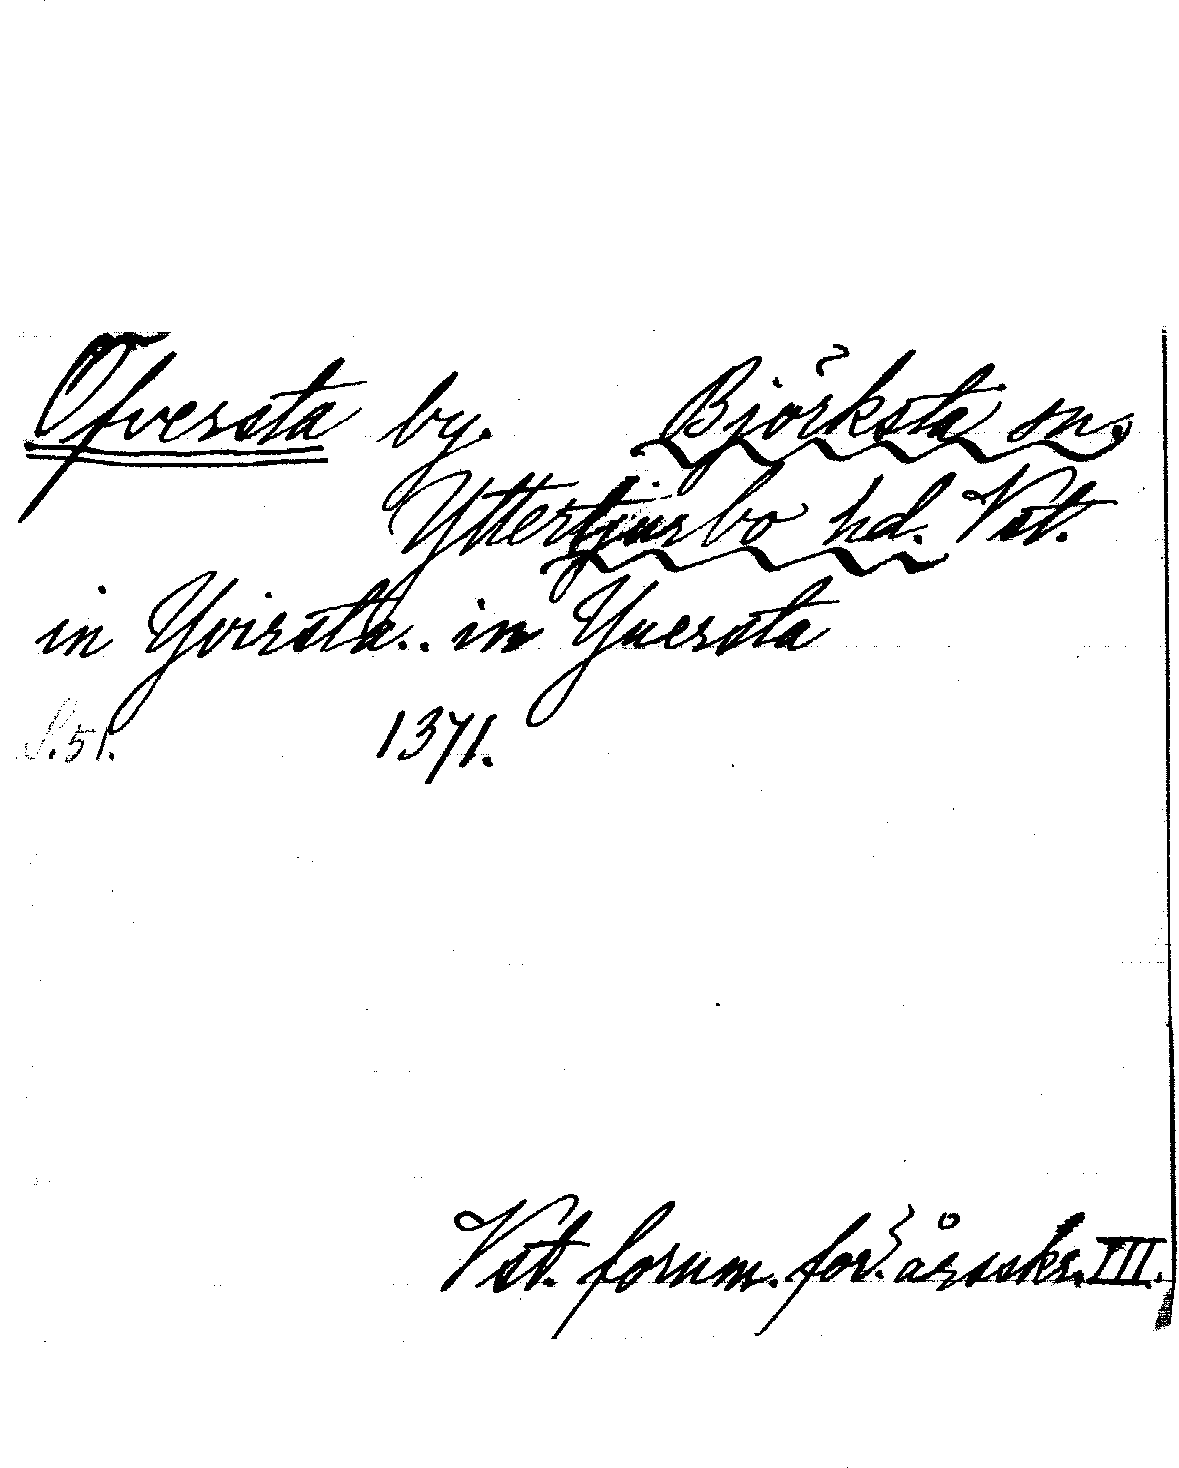 Öfversta by. Björksta sn.
Yttertjurbo hd. Vst.
in Yvirsta.. in Yuersta
S. 51. 1371.
Vst. forum. för. årsskr. III.